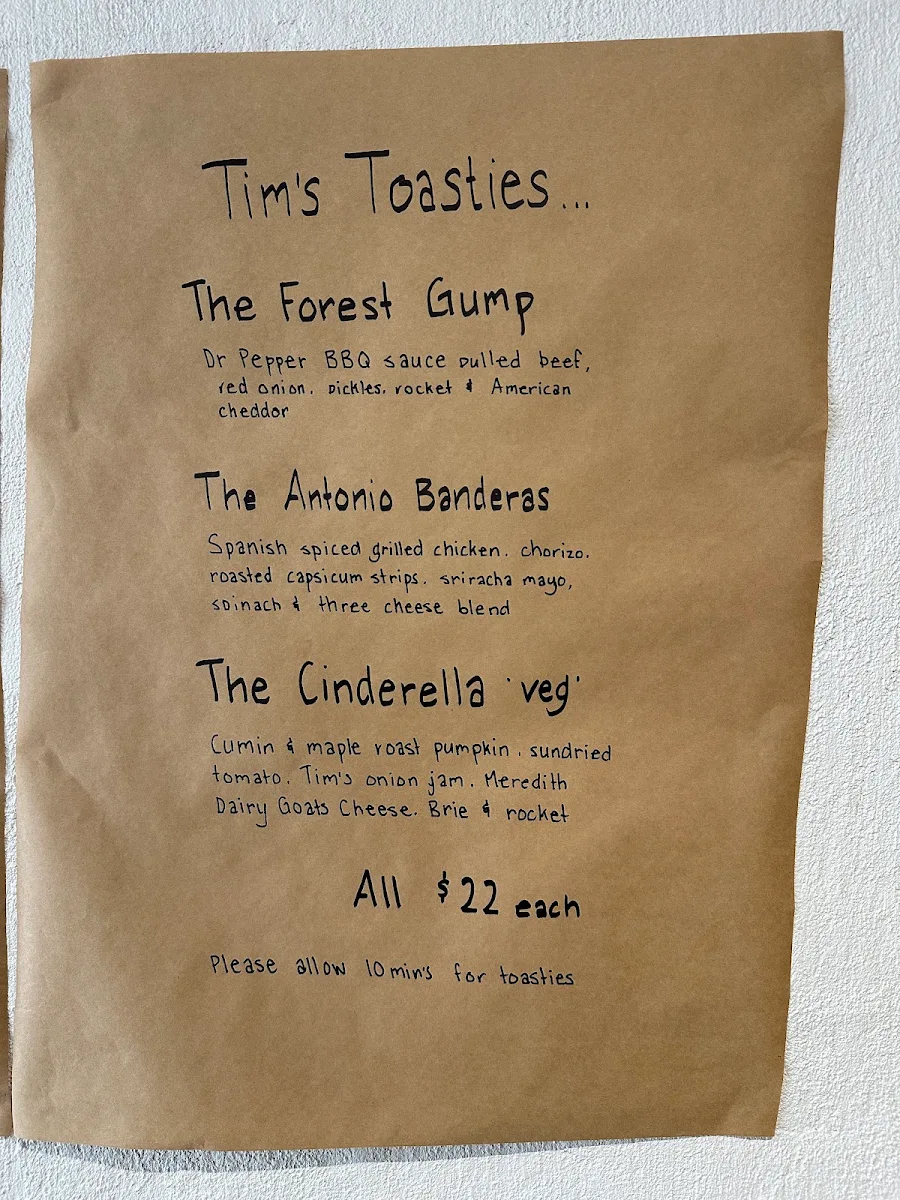 Tim's Toasties...
The Forest Gump
Dr Pepper BBQ sauce pulled beef,
red onion, pickles, rocket & American
cheddor
The Antonio Banderas
Spanish spiced grilled chicken, chorizo,
roasted capsicum strips, sriracha mayo,
spinach & three cheese blend
The Cinderella 'veg'
Cumin & maple roast pumpkin, sundried
tomato, Tim's onion jam, Meredith
Dairy Goats Cheese, Brie & rocket
All $22 each
Please allow 10min's for toasties